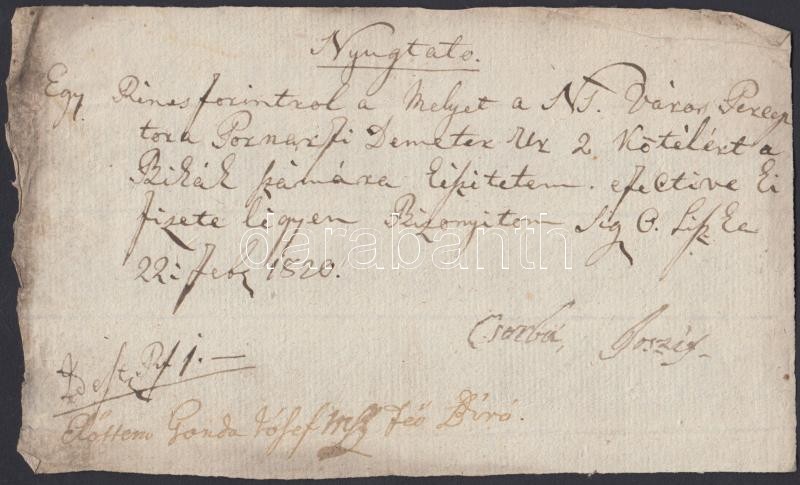 Nyugtato.
Egy Rinesforintrol a Melyet a NS. Város Percep
tora Pornarfi Demeter Ur 2 Kötélért a
Bikák számára Liszitetem. efective ki
fizete légyen Bizonyitom Sig O. Liszka
22i Feb 1820.
Csorba, Joszéf
Id est Rf 1.—
Előttem Gonda Jósef Feö Bíró.
darabanth